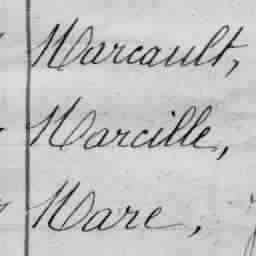 Marcault,
Marcille,
Mare,